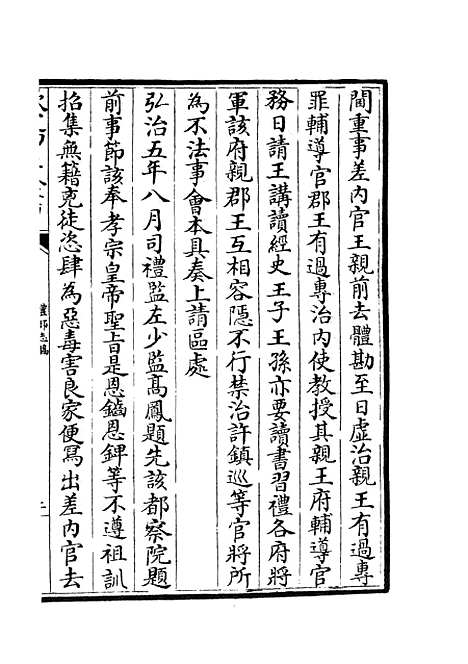 間重事差内官王親前去體勘至日虛治親王有過專
罪輔導官郡王有過專治内使教授其親王府輔導官
務日請王講讀經史王子王孫亦要讀書習禮各府將
軍該府親郡王互相容隱不行禁治許鎮巡等官將所
為不法事會本具奏上請區處
弘治五年八月司禮監左少監高鳳題先該都察院題
前事節該奉孝宗皇帝聖旨是恩鐇恩錍等不遵祖訓
招集無籍兇徒恣肆為惡毒害良家便寫出差内官去
禮部志稿